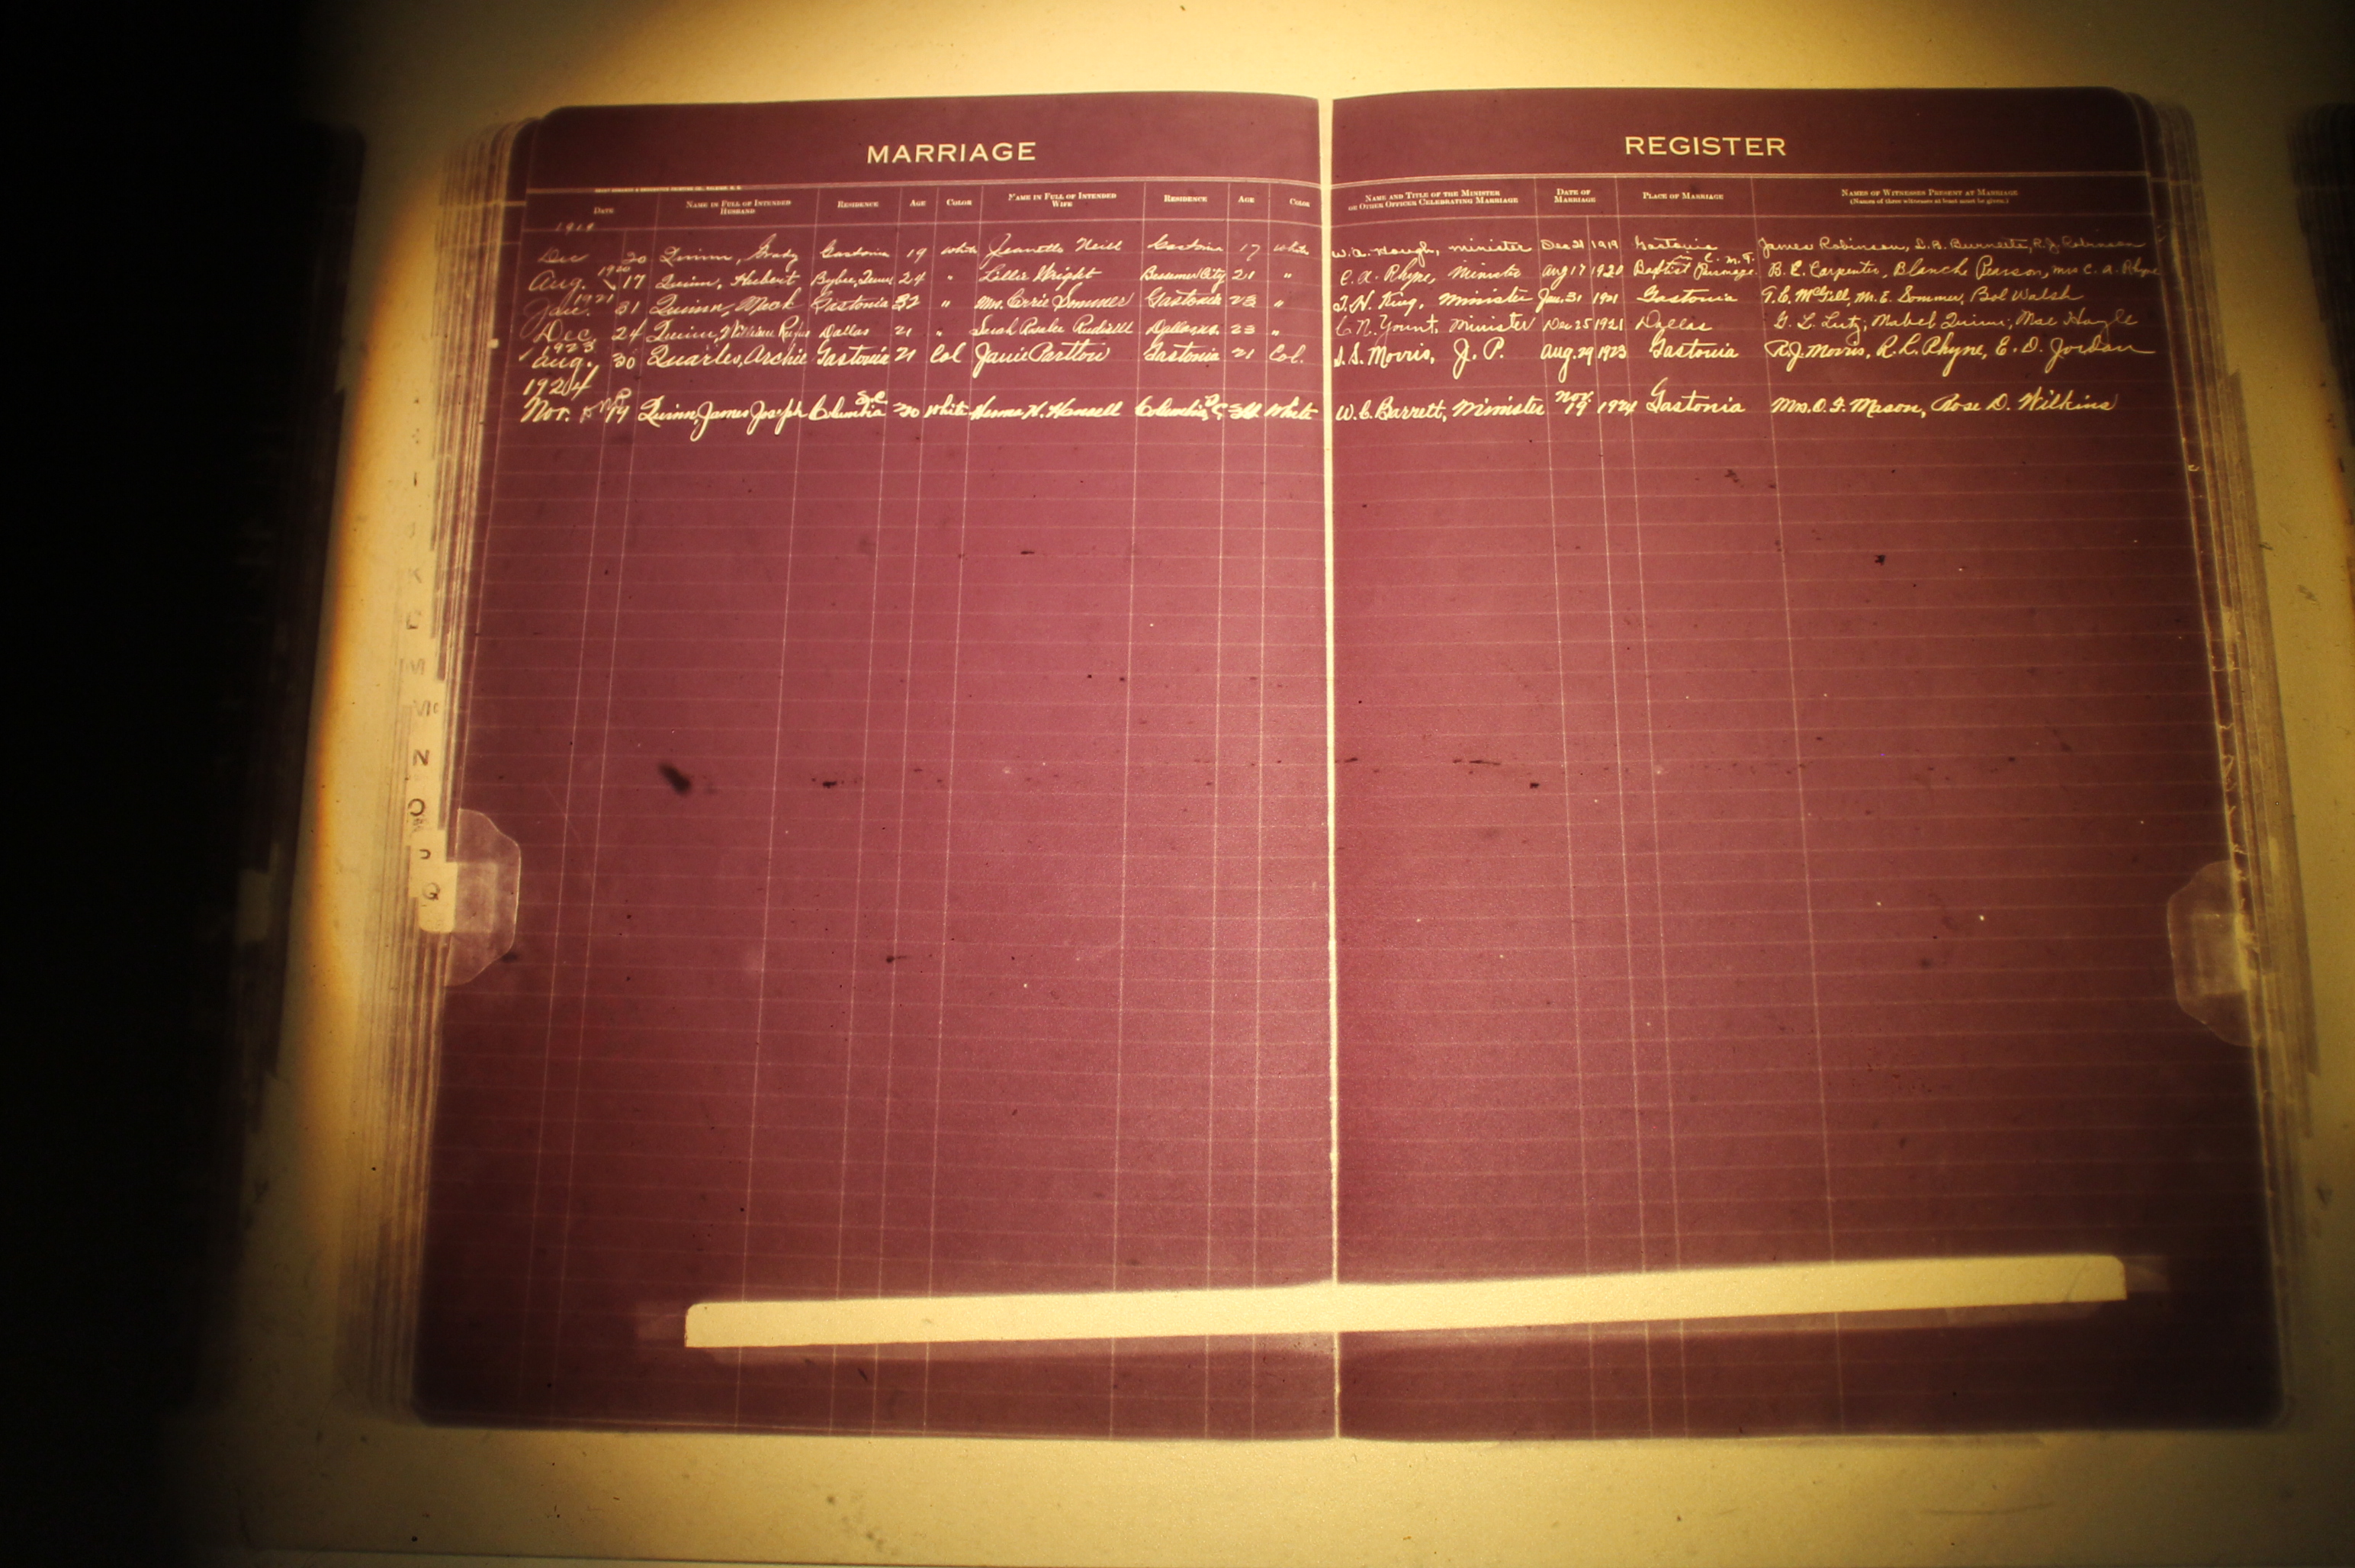 MARRIAGE
REGISTER
DATE NAME IN FULL OF INTENDED HUSBAND RESIDENCE AGE COLOR NAME IN FULL OF INTENDED WIFE RESIDENCE AGE COLOR NAME AND TITLE OF THE MINISTER OR OTHER OFFICER CELEBRATING MARRIAGE DATE OF MARRIAGE PLACE OF MARRIAGE NAMES OF WITNESSES PRESENT AT MARRIAGE (Names of three witnesses at least must be given.)
1919
Dec 20 Quinn, Grady Gastonia 19 white Jeanette Neill Gastonia 17 white W. A. Hough, minister Dec 21 1919 Gastonia James Robinson, D. A. Burnette, R. J. Robinson
1920
Aug. 17 Quinn, Hubert 24 " Lillie Wright Bessemer City 21 " C. A. Rhyne, Minister Aug 17 1920 Baptist Parsonage B. E. Carpenter, Blanche Pearson, Mrs C. A. Rhyne
1921
Jan. 31 Quinn, Mack Gastonia 32 " Mrs. Sommer Gastonia 23 " J. H. King, Minister Jan. 31 1921 Gastonia T. E. McGill, M. E. Sommer, Bob Walsh
Dec 24 Quinn, William Rufus Dallas 21 " Sarah Rudisill Dallas 23 " C. N. Yount, Minister Dec 25 1921 Dallas G. L. Lutz, Mabel Quinn, Mae Hoyle
1923
Aug. 30 Quarles, Archie Gastonia 21 Col Janie Gastonia 21 Col. S. S. Morris, J. P. Aug. 29 1923 Gastonia R. J. Morris, R. L. Rhyne, E. D. Jordan
1924
Nov. 19 Quinn, James Joseph Columbia S.C. 30 White H. Hansell Columbia S.C. White W. C. Barrett, Minister Nov. 19 1924 Gastonia Mrs. O. F. Mason, Rose D. Wilkins
K
M
Mc
N
O
Q